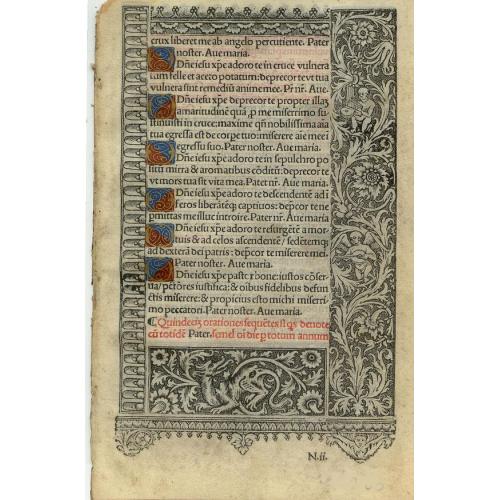 crux liberet me ab angelo percutiente. Pater
noster. Aue maria.
Dñe iesu xp̃e adoro te in cruce vulnera
tum felle et aceto potatum: deprecor te vt tua
vulnera sint remediũ anime mee. Pr̃ nr̃. Aue.
Dñe iesu xp̃e deprecor te propter illas
amaritudines quã p me miserrimo su
stinuisti in cruce: maxime qñ nobilissima aĩa
tua egressa est de corpe tuo: miserere aie meę ĩ
egressu suo. Pater noster. Aue maria.
Dñe iesu xp̃e adoro te in sepulchro po
situ mirra & aromatibus cõditũ: deprecor te
vt mors tua sit vita mea. Pater nr̃. Aue maria.
Dñe iesu xp̃e adoro te descendentẽ ad ĩ
feros liberãtẽq; captiuos: dep̃cor te ne
pmittas me illuc introire. Pater nr̃. Aue maria
Dñe iesu xp̃e adoro te resurgẽtẽ a mor
tuis & ad celos ascendentẽ/ sedẽtemq;
ad dexterã dei patris: dep̃cor te miserere mei
Pater noster. Aue maria.
Dñe iesu xp̃e pastor bone: iustos cõser
ua/ pctõres iustifica: & oĩbus fidelibus defun
ctis miserere: & propicius esto michi miserri
mo peccatori. Pater noster. Aue maria.
¶ Quindecĩ orationes sequẽtes si q̃s deuote
cũ totidẽ Pater. semel oĩ die p totum annum
N.ii.